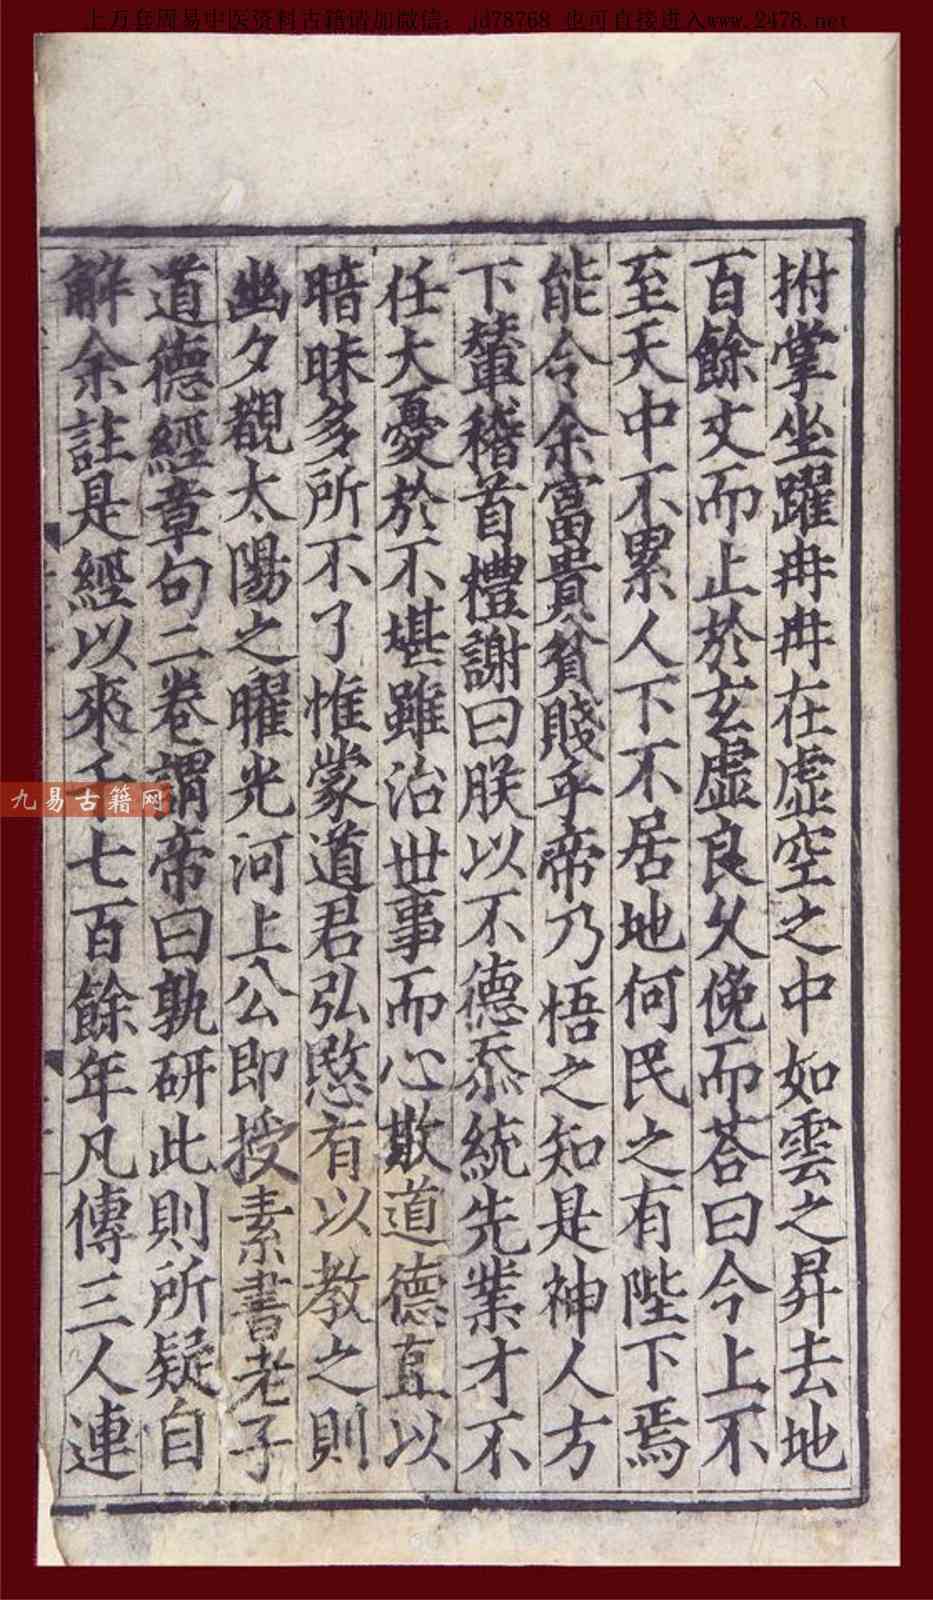 上万套周易中医资料古籍请加微信：jd78768 也可直接进入www.2478.net
拊掌坐躍冉冉在虛空之中如雲之昇去地
百餘丈而止於玄虛良久俛而荅曰今上不
至天中不累人下不居地何民之有陛下焉
能令余富貴貧賤乎帝乃悟之知是神人方
下輦稽首禮謝曰朕以不德忝統先業才不
任大憂於不堪雖治世事而心敬道德直以
暗昧多所不了惟蒙道君弘愍有以教之則
幽夕覩太陽之曜光河上公即授素書老子
道德經章句二卷謂帝曰孰研此則所疑自
解余註是經以來千七百餘年凡傳三人連
九易古籍网